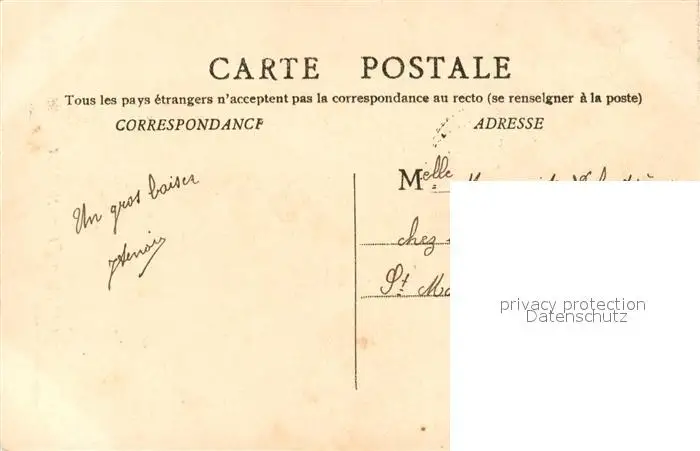 CARTE POSTALE
Tous les pays étrangers n'acceptent pas la correspondance au recto (se renseigner à la poste)
CORRESPONDANCE
ADRESSE
Un gros baiser
Melle
chez
St
privacy protection
Datenschutz